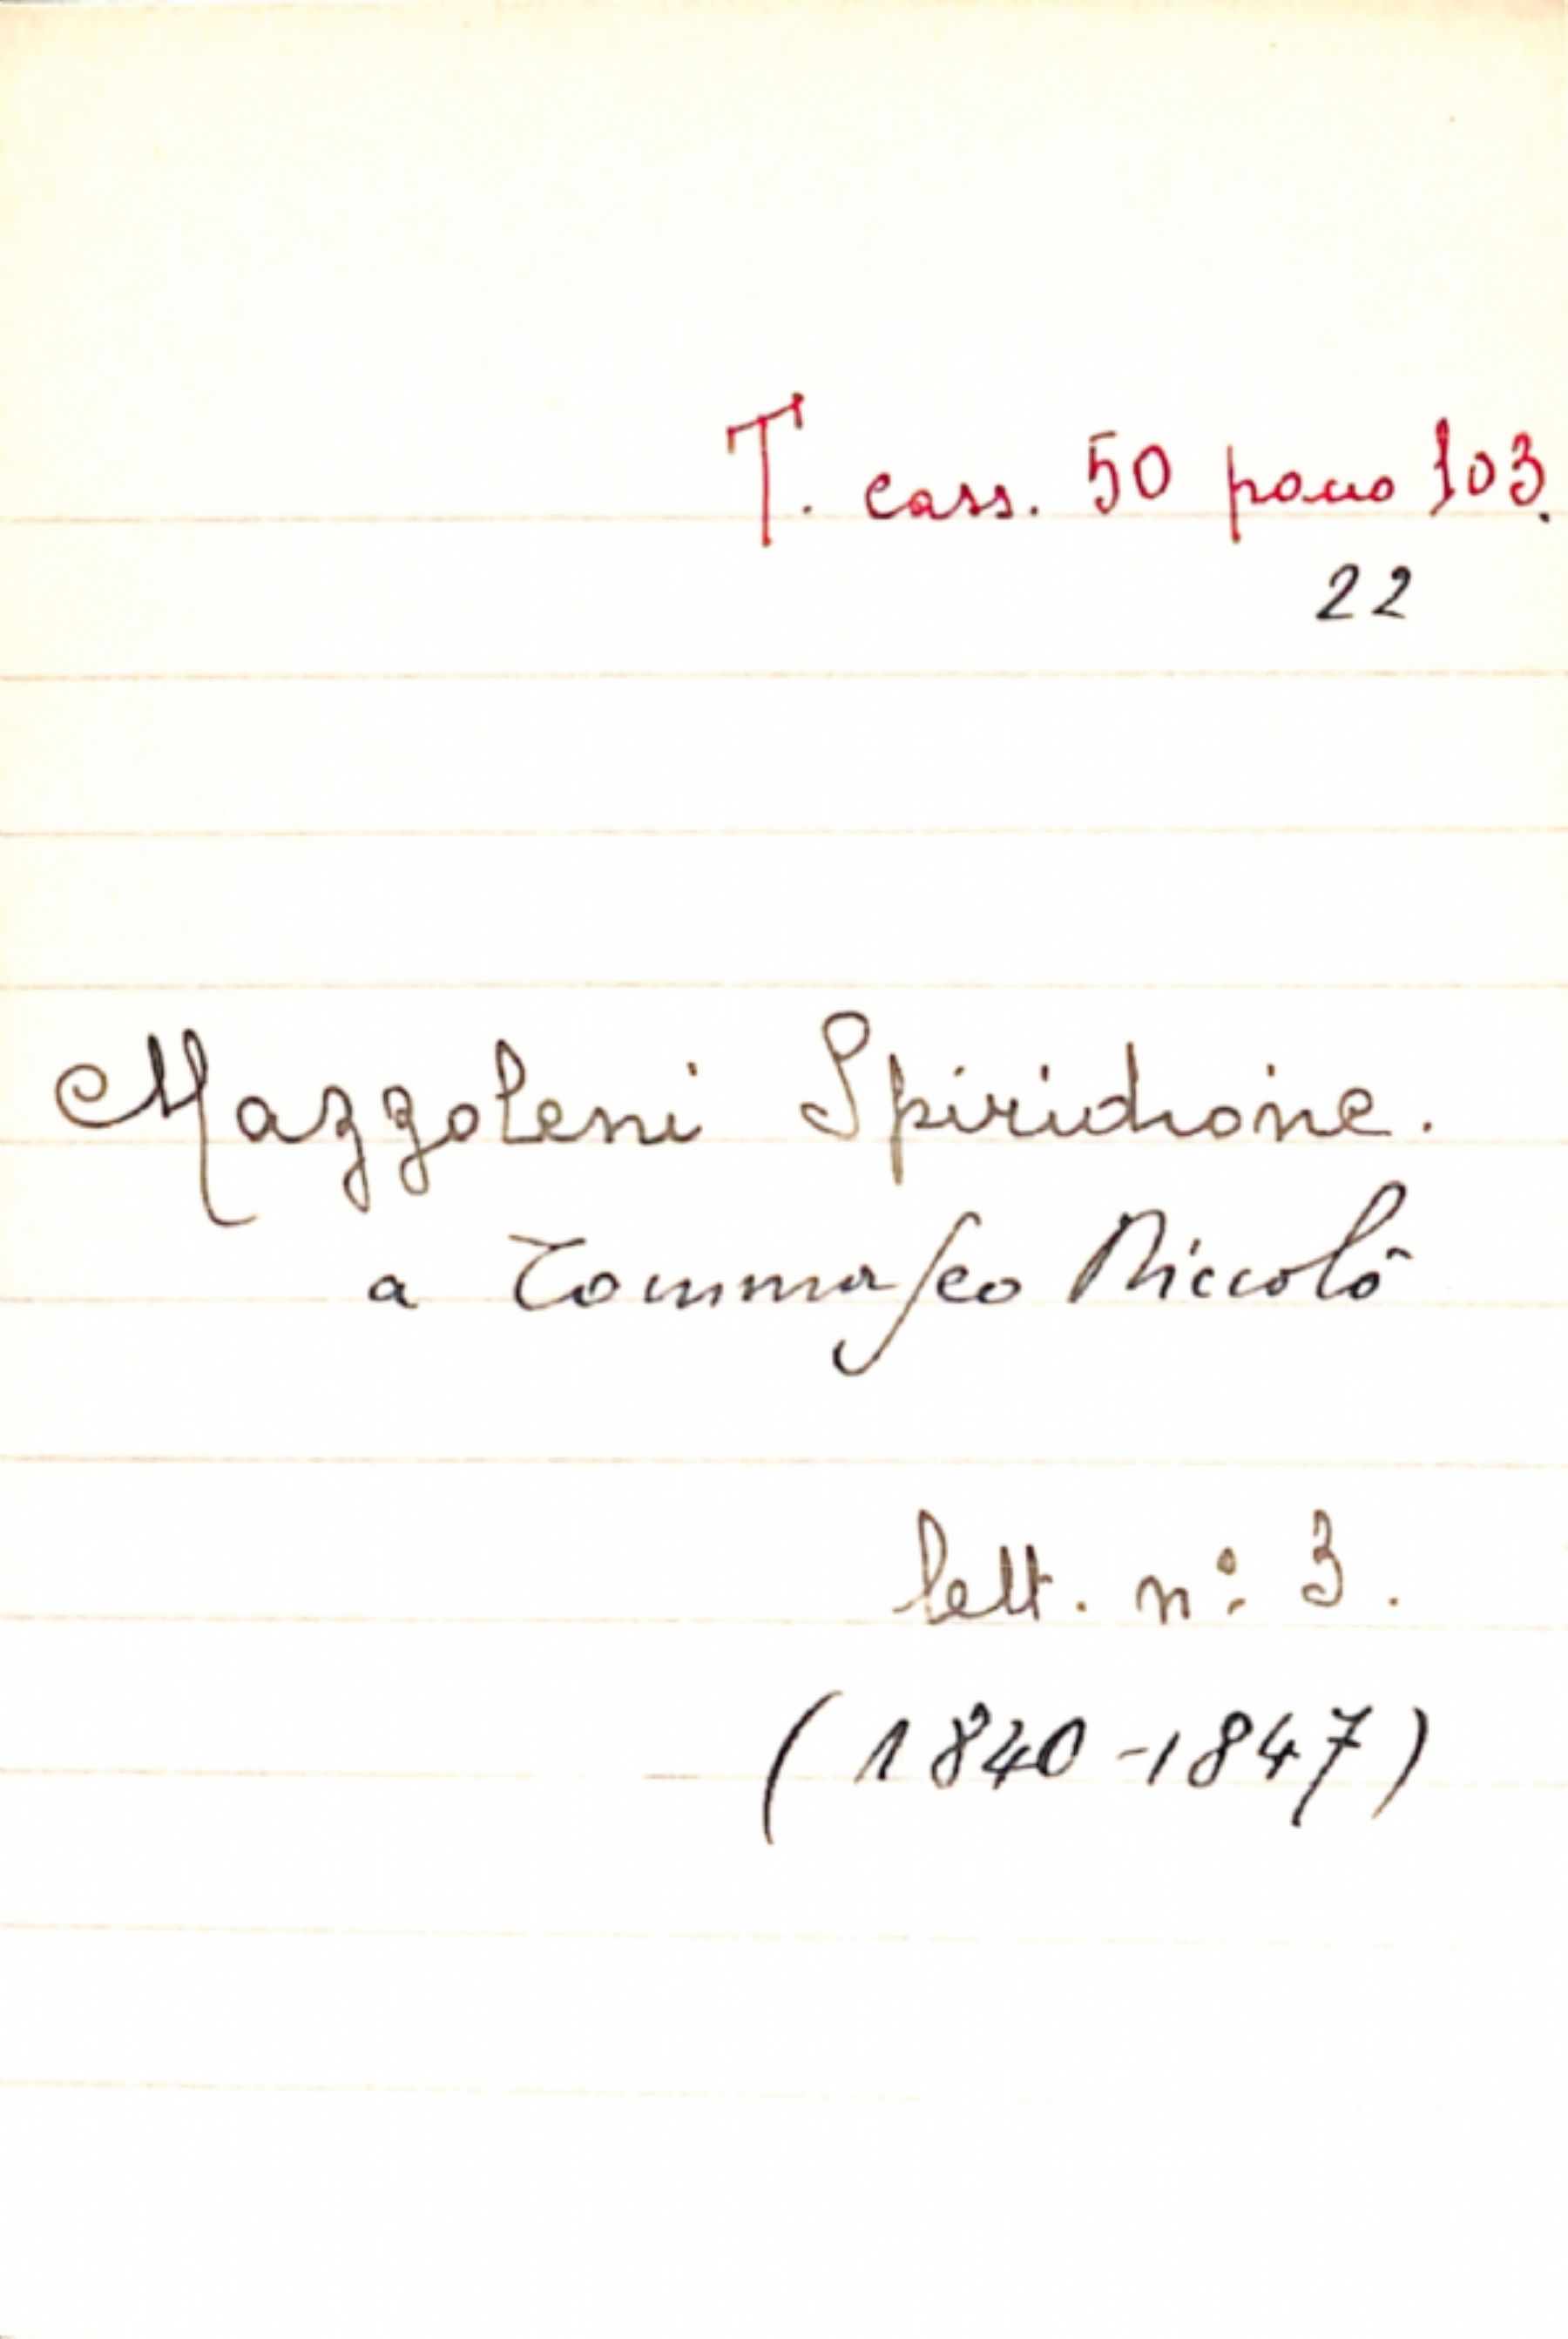 T. cass. 50 pacco 103.
22
Mazzoleni Spiridione.
a Tommaseo Niccolò
lett. n: 3.
(1840-1847)